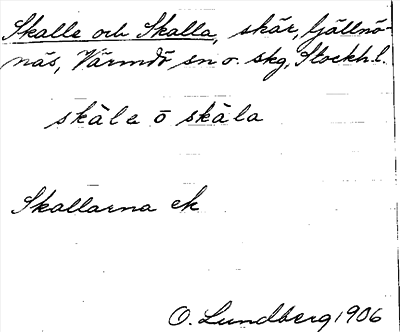 Skalle och Skalla, skär, Gällnö-
näs, Värmdö sn o. skg, Stockh. l.
skàle ō skàla
Skallarna ek
O. Lundberg 1906